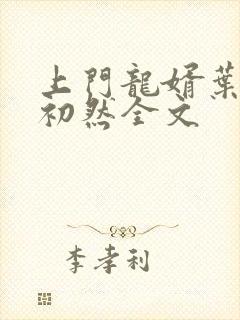 上門龍婿葉
初然全文
李孝利